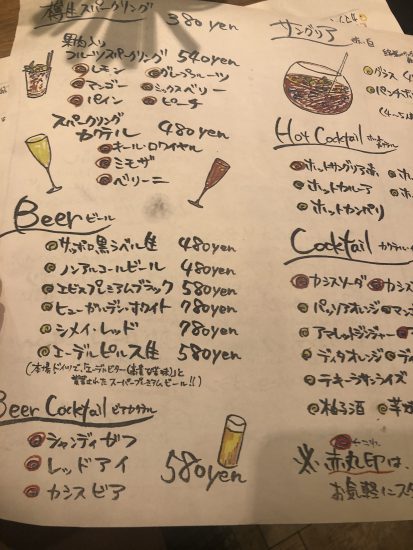 樽生スパークリング 380yen
果肉入り
フルーツスパークリング 540yen
レモン グレープフルーツ
マンゴー ミックスベリー
パイン ピーチ
スパークリング
カクテル 480yen
キールロワイヤル
ミモザ
ベリーニ
Beer ビール
サッポロ黒ラベル生 480yen
ノンアルコールビール 480yen
エビスプレミアムブラック 580yen
ヒューガルデン・ホワイト 780yen
シメイ・レッド 780yen
エーデルピルス生 580yen
スーパープレミアムビール!!)
Beer Cocktail ビアカクテル
シャンディガフ
レッドアイ 580yen
カシスビア
サングリア 赤・白
グラス
Hot Cocktail ホットカクテル
ホットサングリア赤
ホットカルーア
ホットカンパリ
Cocktail カクテル
カシスソーダ カシス
パッソアオレンジ
アマレットジンジャー
ディタオレンジ
テキーラサンライズ
柚子酒
※赤丸印は、
お気軽にス